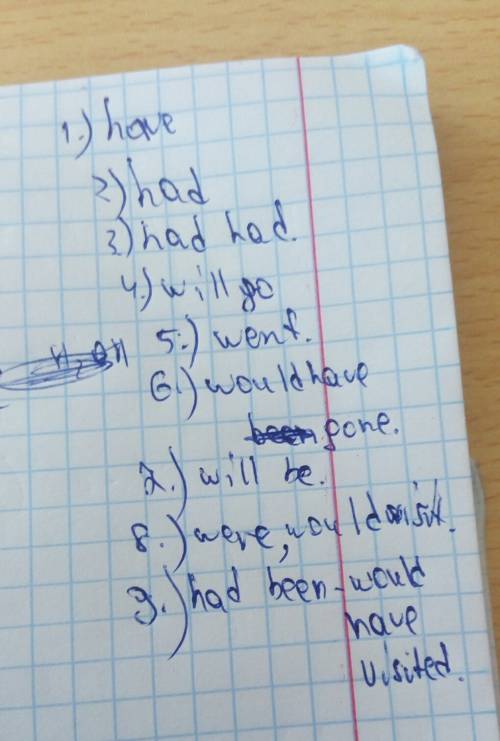 1.) have
2) had
3) had had.
4.) will go
5.) went.
6.) would have
gone.
7.) will be.
8.) were, would visit.
9.) had been - would
have
visited.